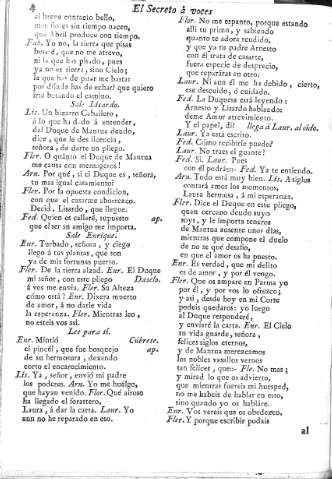 4
El Secreto á voces
al breve contacto bello,
mas flores sin tiempo nacen,
que Abril produce con tiempo.
Fab. Yo no, la tierra que pisas
besaré, que no me atrevo,
ni la que has pisado, pues
ya no es tierra, sino Cielo;
la que has de pisar me basta:
por dónde has de echar? que quiero
irla besando el camino.
Sale Lisardo.
Lis. Un bizarro Caballero,
á lo que ha dado á entender,
del Duque de Mantua deudo,
dice, que le des licencia,
señora, de darte un pliego.
Fler. O quánto el Duque de Mantua
me cansa con mensageros!
Arn. Por qué, si el Duque es, señora,
tu mas igual casamiento?
Fler. Por la opuesta condicion,
con que el casarme aborrezco.
Decid, Lisardo, que llegue.
Fed. Quien es callaré, supuesto ap.
que el ser su amigo me importa.
Sale Enrique.
Enr. Turbado, señora, y ciego
llego á tus plantas, que son
ya de mis fortunas puerto.
Fler. De la tierra alzad. Enr. El Duque
mi señor, con este pliego Dasele.
á vos me envia. Fler. Su Alteza
cómo está? Enr. Dixera muerto
de amor, á no darle vida
la esperanza. Fler. Mientras leo,
no esteis vos así.
Lee para sí.
Enr. Mintió Cúbrese.
el pincél, que fue bosquejo ap.
de su hermosura, dexando
corto el encarecimiento.
Lis. Ya, señor, envió mi padre
los poderes. Arn. Yo me huelgo,
que hayan venido. Flor. Qué airoso
ha llegado el forastero,
Laura, á dar la carta. Laur. Yo
aun no he reparado en eso.
Flor. No me espanto, porque estando
allí tu primo, y sabiendo
quanto te adora rendido,
y que ya tu padre Arnesto
con él trata de casarte,
fuera especie de desprecio,
que repararas en otro.
Laur. Ni aun él me ha debido, cierto,
ese descuido, ó cuidado.
Fed. La Duquesa está leyendo:
Arnesto y Lisardo hablando:
deme Amor atrevimiento.
Y el papel, di? llega á Laur. al oido.
Laur. Ya está escrito.
Fed. Cómo recibirle puedo?
Laur. No traes el guante?
Fed. Sí. Laur. Pues
con él podrás- Fed. Ya te entiendo.
Arn. Todo está muy bien. Lis. A siglos
contará amor los momentos,
Laura hermosa, á mi esperanza.
Fler. Dice el Duque en este pliego,
quan cercano deudo suyo
soys, y le importa teneros
de Mantua ausente unos dias,
mientras que compone el duelo
de no se qué desafio,
en que el amor os ha puesto.
Enr. Es verdad, que mi delito
es de amor, y por él vengo.
Fler. Que os ampare en Parma yo
por él, y por vos lo ofrezco;
y así, desde hoy en mi Corte
podeis quedaros: yo luego
al Duque responderé,
y enviaré la carta. Enr. El Cielo
tu vida guarde, señora,
felices siglos eternos,
y de Mantua merezcamos
los nobles vasallos vernos
tan felices, que:- Fle. No mas;
y mirad lo que os advierto,
que mientras fuereis mi huesped,
no me habeis de hablar en esto,
sino quando yo os hablare.
Enr. Vos vereis que os obedezco.
Fler. Y porque escribir podais
al